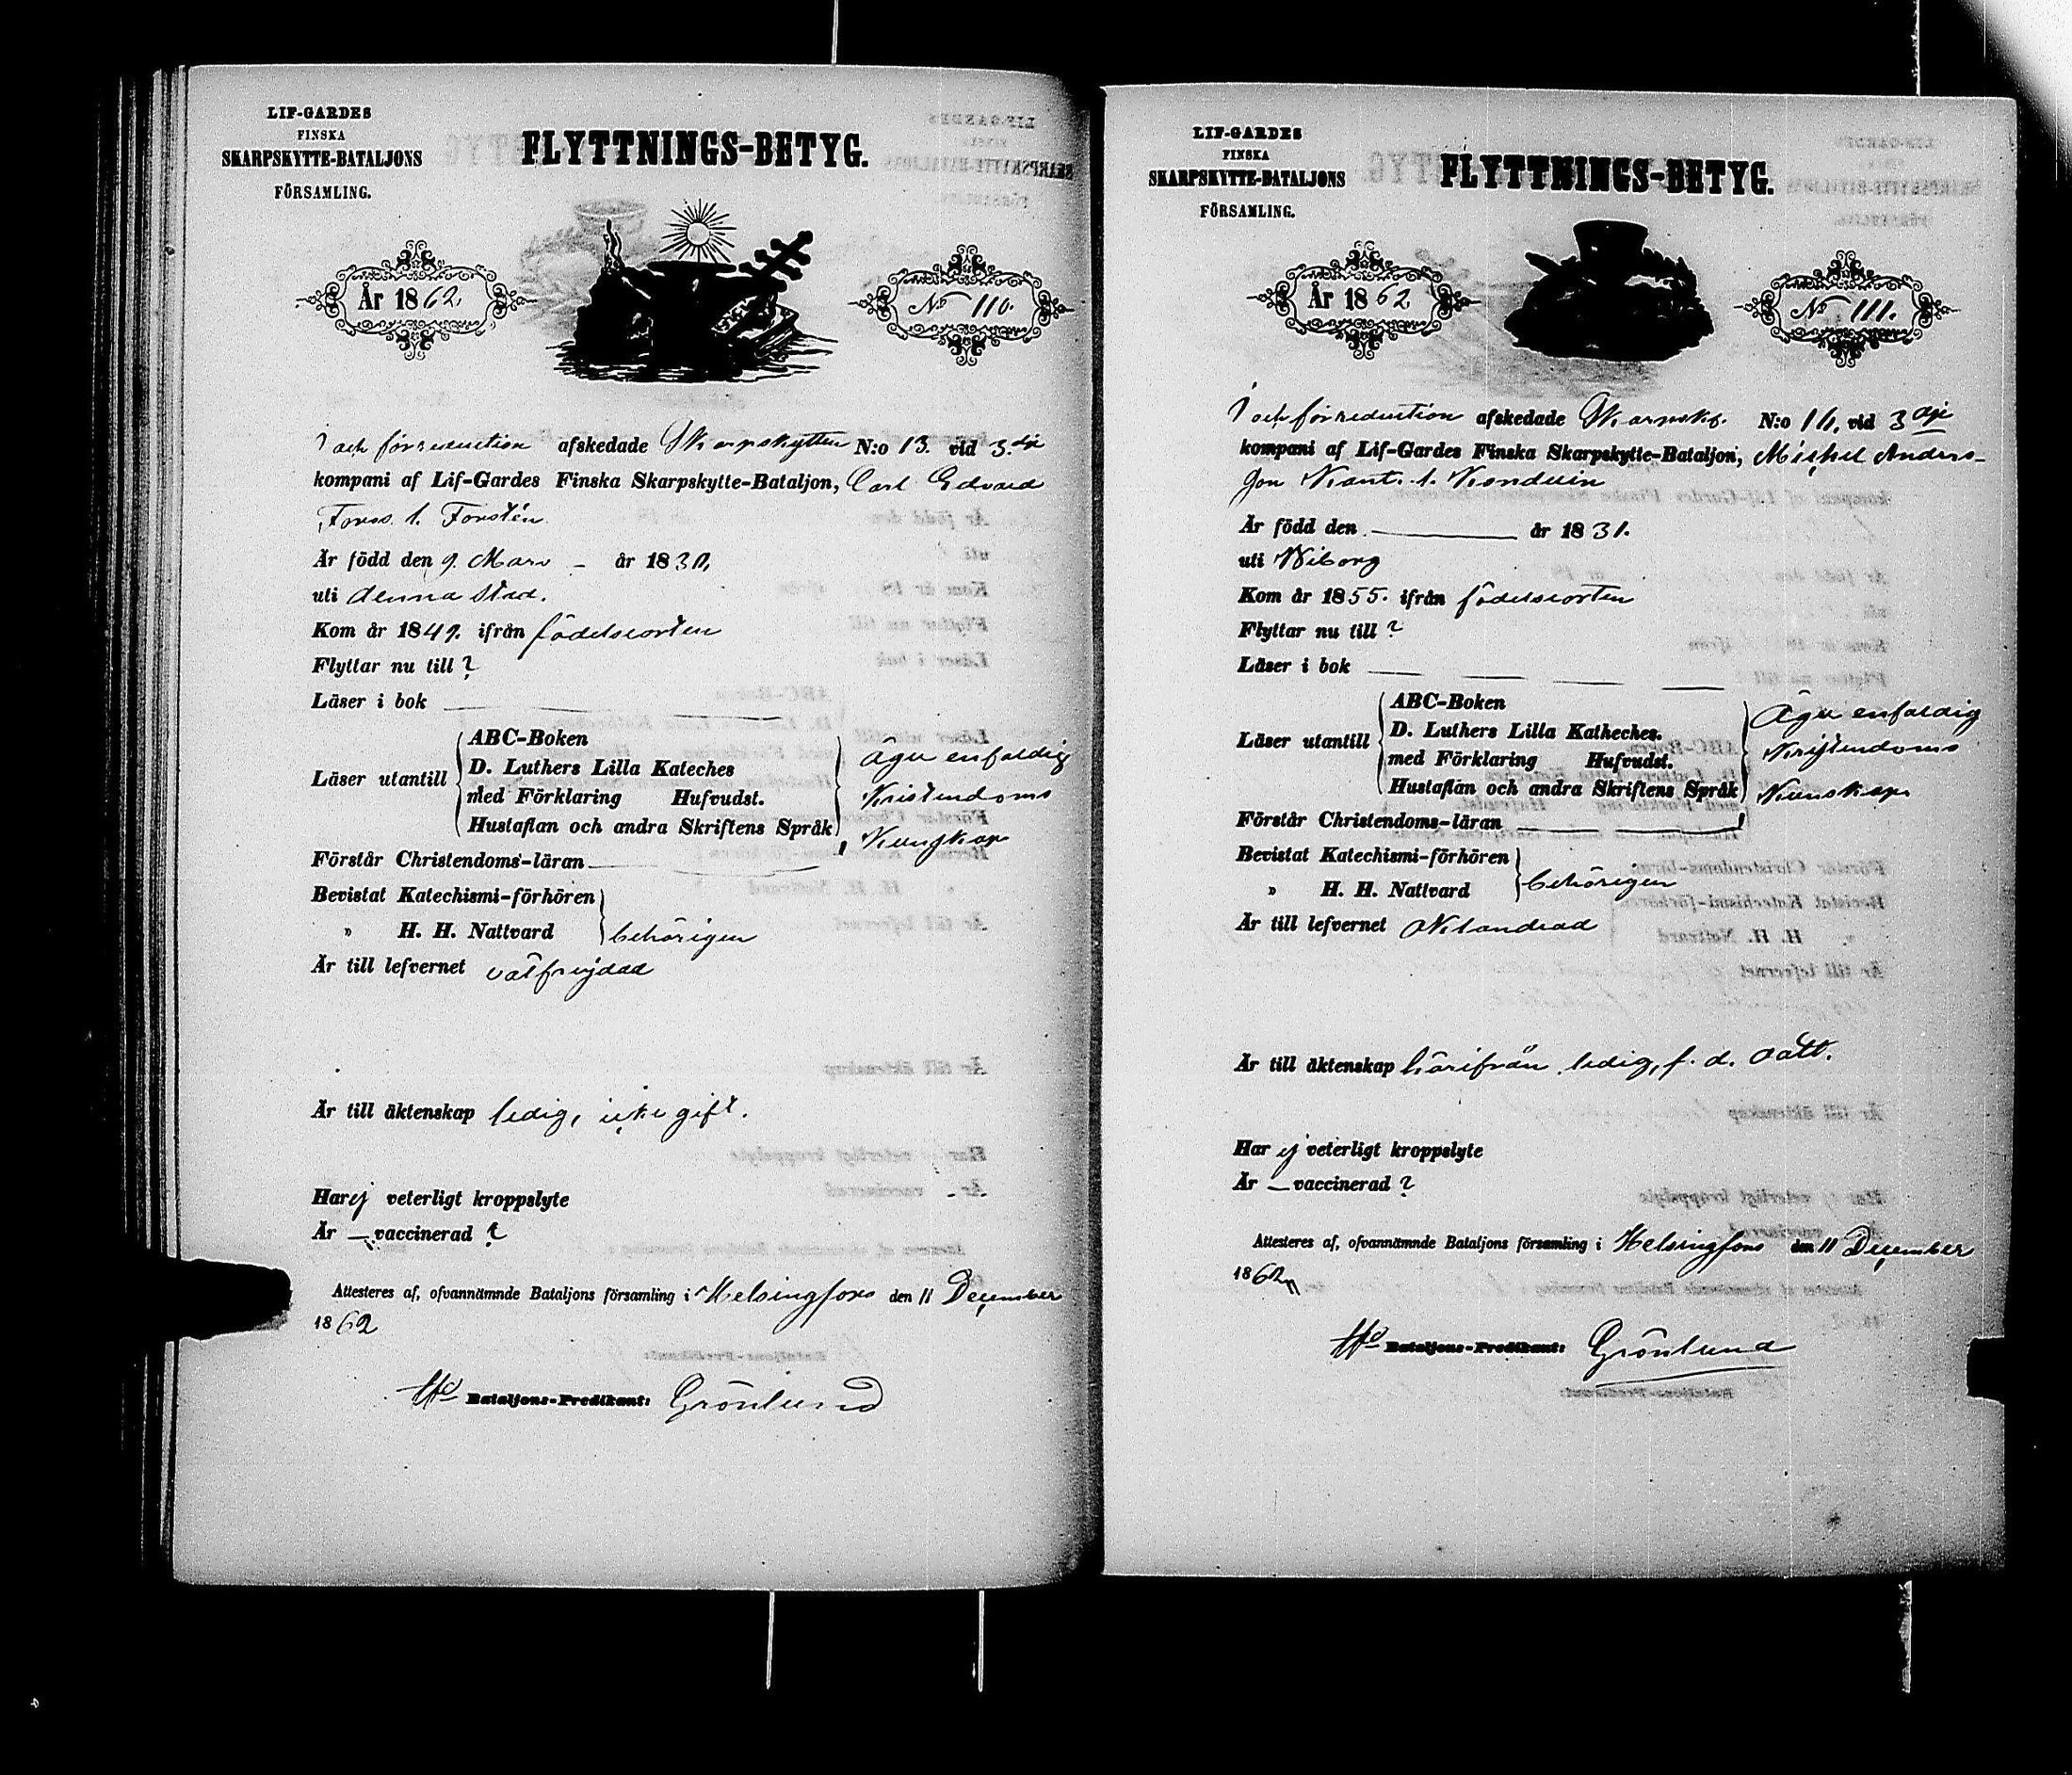 LIF-GARDES
FINSKA
SKARPSKYTTE-BATALJONS
FÖRSAMLING.
FLYTTNINGS-BETYG.
År 1862.
No 110.
I och för reduction afskedade Skarpskytten N:o 13. vid 3.dje
kompani af Lif-Gardes Finska Skarpskytte-Bataljon, Carl Edvard
Forss l. Forstén
Är född den 9. Mars - år 1830,
uti denna stad.
Kom år 1849. ifrån födelseorten
Flyttar nu till ?
Läser i bok
Läser utantill
ABC-Boken
D. Luthers Lilla Kateches
med Förklaring Hufvudst.
Hustaflan och andra Skriftens Språk
Äger enfaldig
Kristendoms
Kunskap
Förstår Christendoms-läran
Bevistat Katechismi-förhören
" H. H. Nattvard
behörigen
Är till lefvernet välfrejdad
Är till äktenskap ledig, icke gift.
Har ej veterligt kroppslyte
Är — vaccinerad ?
Attesteres af, ofvannämnde Bataljons församling i Helsingfors den 11 December
1862
Bataljons-Predikant: Grönlund
LIF-GARDES
FINSKA
SKARPSKYTTE-BATALJONS
FÖRSAMLING.
FLYTTNINGS-BETYG.
År 1862,
No 111.
I och för reduction afskedade Skarpsk. N:o 16, vid 3 dje
kompani af Lif-Gardes Finska Skarpskytte-Bataljon, Michel Anders-
son Kant. l. Konduin
Är född den — år 1831.
uti Wiborg
Kom år 1855. ifrån födelseorten
Flyttar nu till ?
Läser i bok
Läser utantill
ABC-Boken
D. Luthers Lilla Katheches.
med Förklaring Hufvudst.
Hustaflan och andra Skriftens Språk
Äger enfaldig
Kristendoms
Kunskap
Förstår Christendoms-läran
Bevistat Katechismi-förhören
" H. H. Nattvard
behörigen
Är till lefvernet oklandrad
Är till äktenskap härifrån ledig, f. d. gått.
Har ej veterligt kroppslyte
Är — vaccinerad ?
Attesteres af, ofvannämnde Bataljons församling i Helsingfors den 11 December
1862,
Bataljons-Predikant: Grönlund